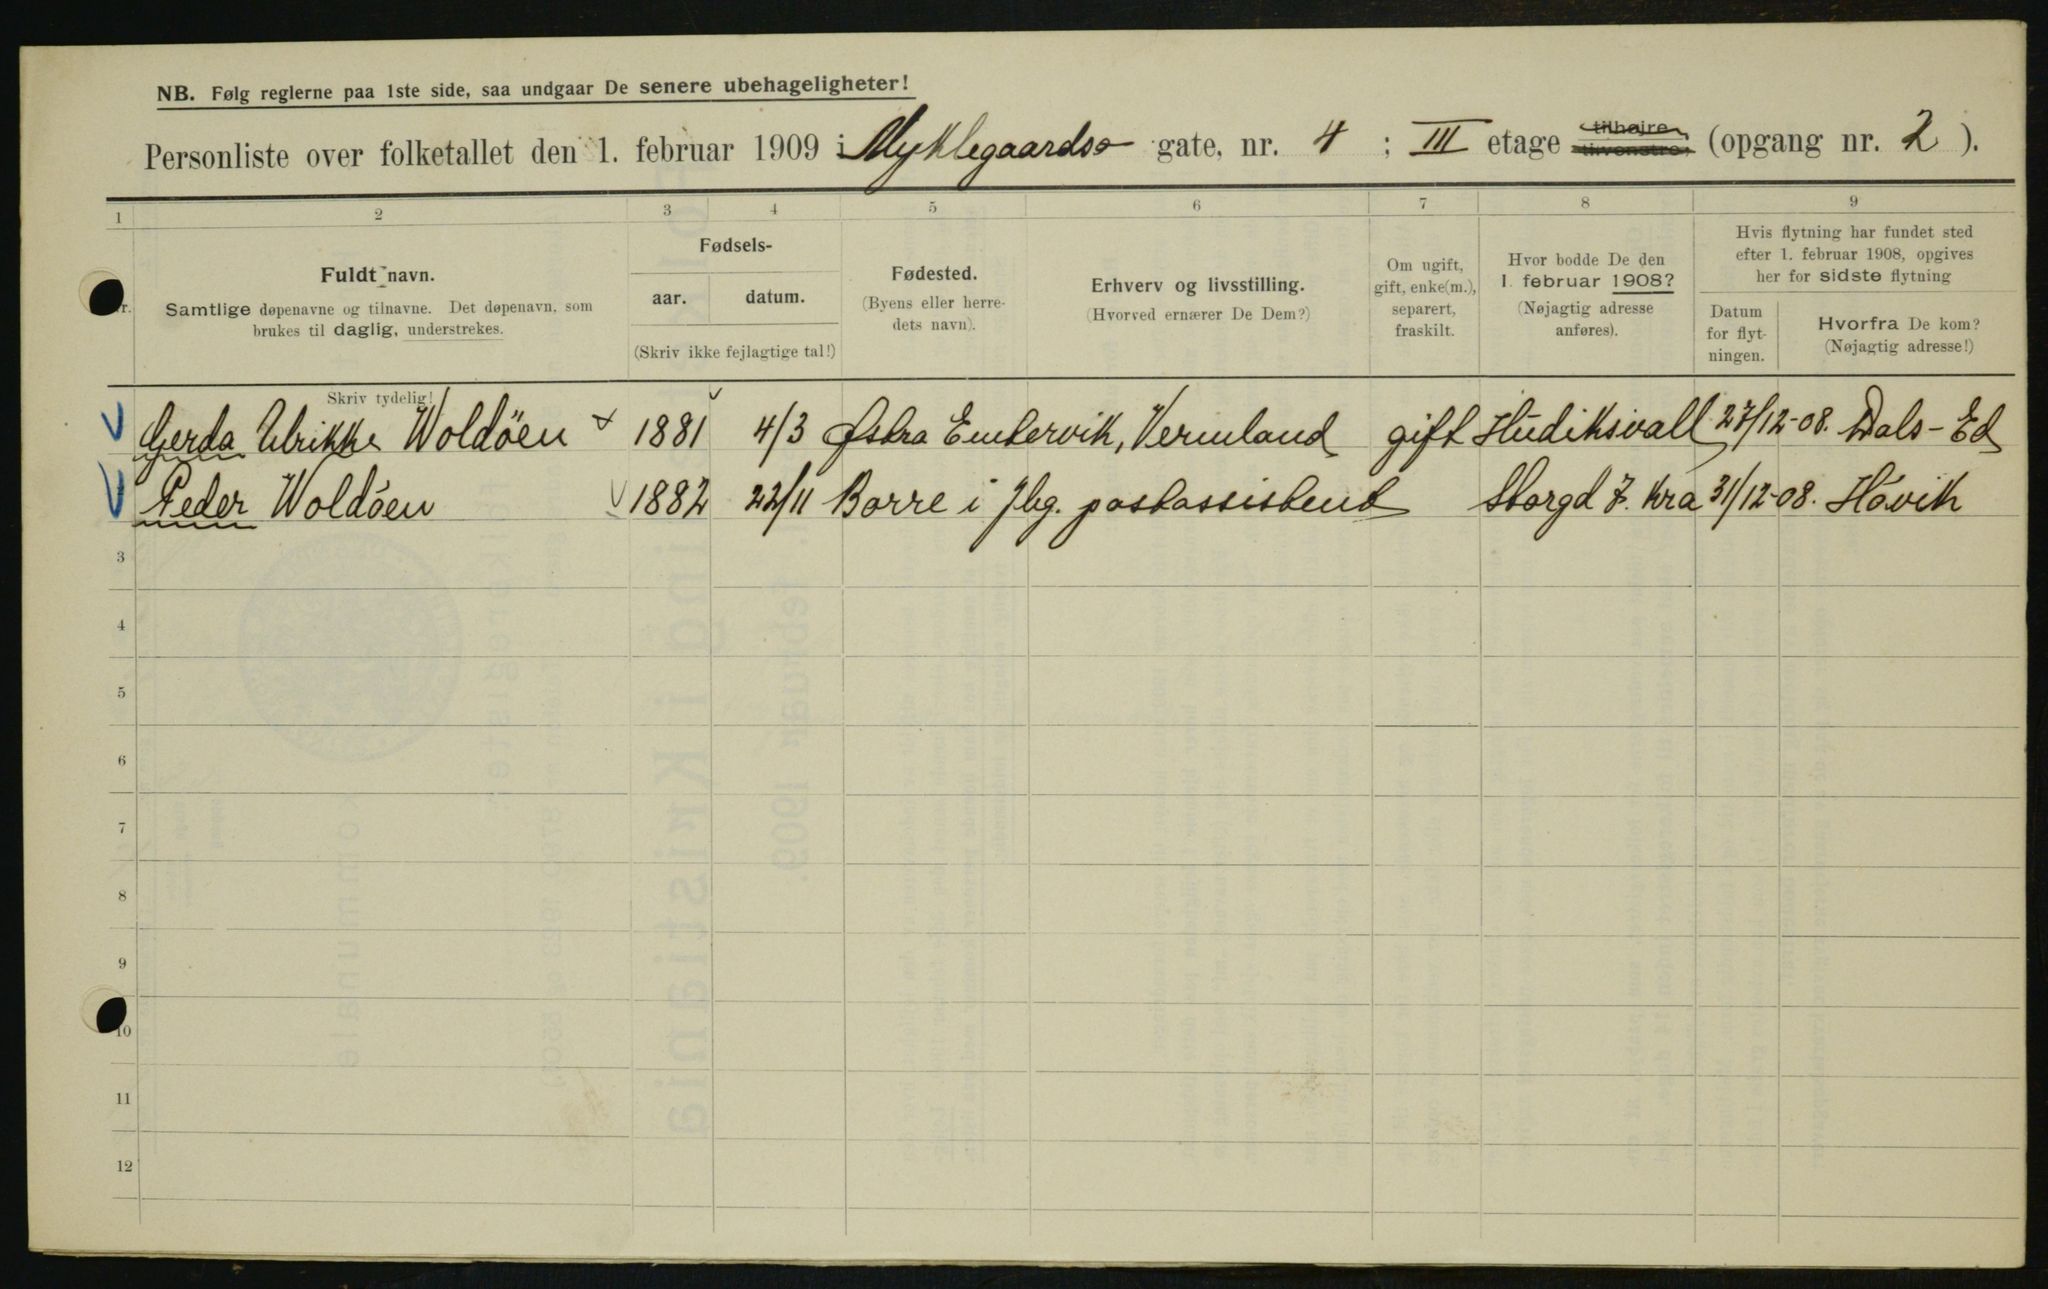 NB. Følg reglerne paa 1ste side, saa undgaar De senere ubehageligheter!
Personliste over folketallet den 1. februar 1909 i Myklegaards gate, nr. 4 ; III etage tilhøjre tilvenstre (opgang nr. 2 ).
1 2 3 4 5 6 7 8 9
Fuldt navn.
Samtlige døpenavne og tilnavne. Det døpenavn, som
brukes til daglig, understrekes.
Skriv tydelig!
Fødsels-
aar. datum.
(Skriv ikke fejlagtige tal!)
Fødested.
(Byens eller herre-
dets navn).
Erhverv og livsstilling.
(Hvorved ernærer De Dem?)
Om ugift,
gift, enke(m.),
separert,
fraskilt.
Hvor bodde De den
1. februar 1908?
(Nøjagtig adresse
anføres).
Hvis flytning har fundet sted
efter 1. februar 1908, opgives
her for sidste flytning
Datum
for flyt-
ningen.
Hvorfra De kom?
(Nøjagtig adresse!)
Gerda Ulrikke Woldöen 1881 4/3 Østra Emtervik, Vermland gift Hudiksvall 27/12-08. Dals-Ed
Peder Woldöen 1882 22/11 Borre i Jbg. postassistent Storgd 7. Kra 31/12-08. Hövik
3
4
5
6
7
8
9
10
11
12